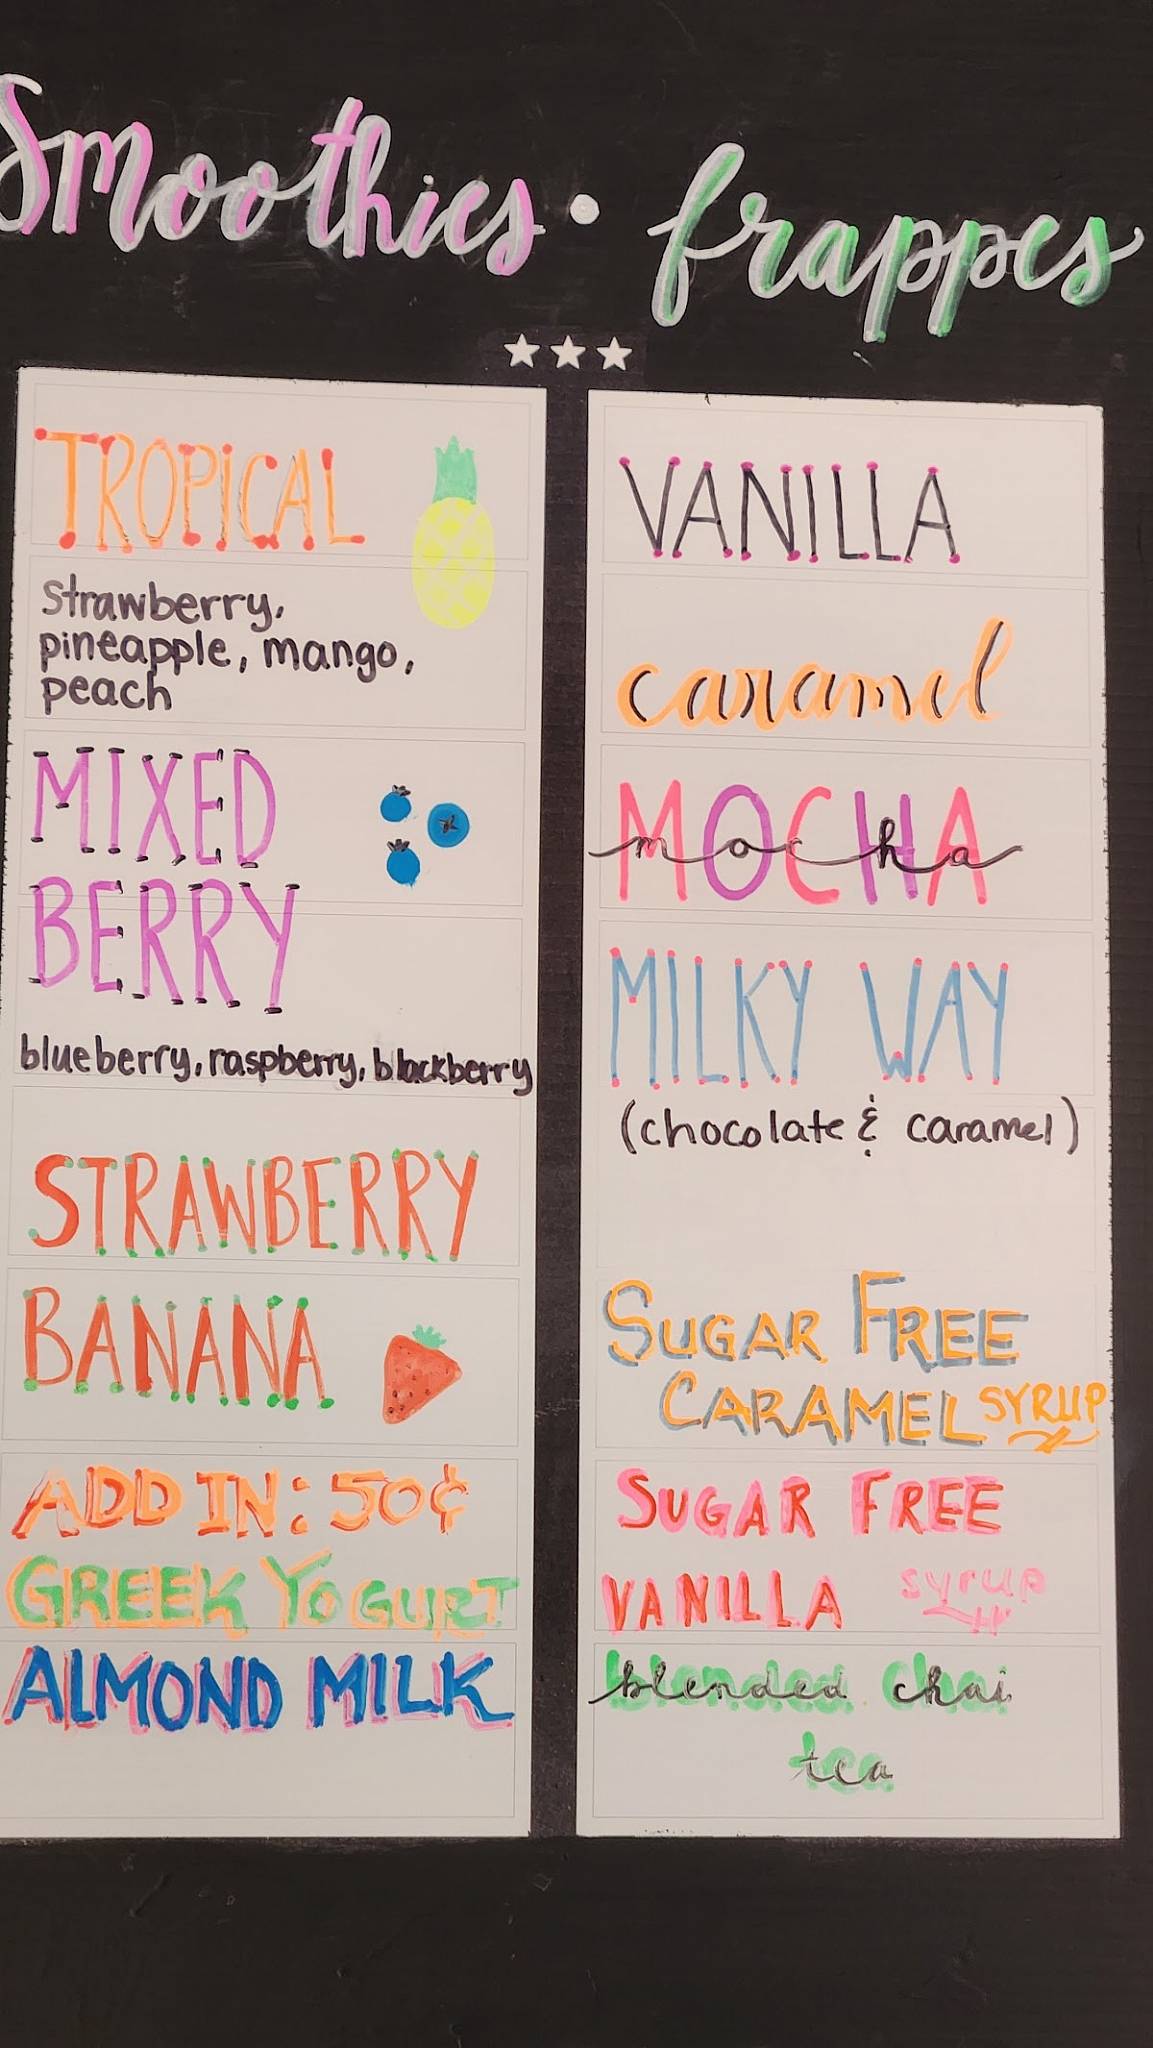 Smoothies • frappes
TROPICAL
strawberry,
pineapple, mango,
peach
MIXED
BERRY
blueberry, raspberry, blackberry
STRAWBERRY
BANANA
ADD IN: 50¢
GREEK YOGURT
ALMOND MILK
VANILLA
caramel
MOCHA
mocha
MILKY WAY
(chocolate & caramel)
SUGAR FREE
CARAMEL SYRUP
SUGAR FREE
VANILLA syrup
blended chai
tea